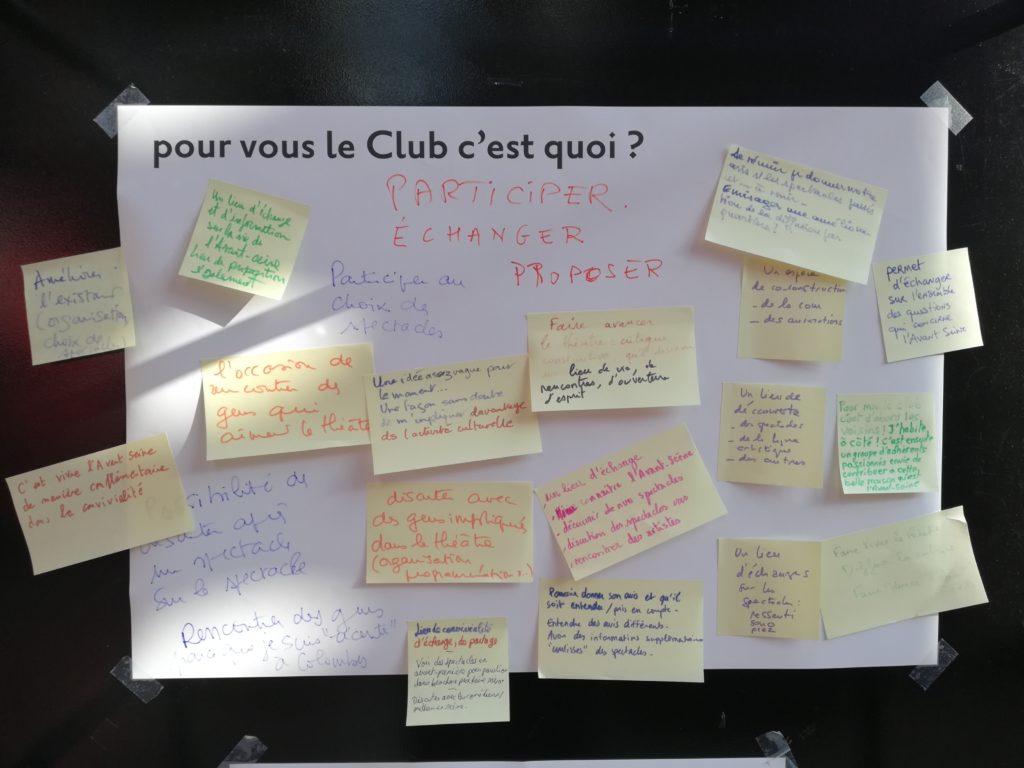 pour vous le Club c'est quoi ?
PARTICIPER.
ÉCHANGER
PROPOSER
Participer au
choix de
spectacles
Un lieu d'échange
et d'information
sur la vie de
l'Avant-scène
lieu de proposition
également
Améliorer
l'existant
(organisation
choix de
spectacles)
l'occasion de
rencontrer des
gens qui
aiment le théâtre
Une idée assez vague pour
le moment...
Une façon sans doute
de m'impliquer davantage
ds l'activité culturelle
Faire avancer
le théâtre : critique
constructive
lieu de vie, de
rencontres, d'ouverture
d'esprit
Se réunir pr donner notre
avis s/ les spectacles passés
et à venir -
Envisager une
diffusion par
quartiers ?
Un espace
de co-construction
- de la com
- des animations
permet
d'échanger
sur l'ensemble
des questions
qui concerne
l'Avant Seine
Un lieu de
découverte
- des spectacles
- de la ligne
artistique
- des autres
Pour moi le club
c'est d'abord les
voisins ! J'habite
à côté ! C'est ensuite
un groupe d'adhérents
passionnés envie de
contribuer à cette
belle maison qu'est
l'Avant-Seine
C'est vivre l'Avant Seine
de manière complémentaire
dans la convivialité
Possibilité de
discuter après
un spectacle
sur le spectacle
Rencontrer des gens
parce que je suis "à carte"
à Colombes
discuter avec
des gens impliqués
dans le théâtre
(organisation
programmation...)
un lieu d'échange
connaître l'Avant-Seine
- découvrir de nvx spectacles
- discution des spectacles vus
- rencontrer des artistes
Pouvoir donner son avis et qu'il
soit entendu / pris en compte -
Entendre des avis différents.
Avoir des informations supplémentaires
"coulisses" des spectacles.
Lieu de convivialité
d'échange, de partage
Voir des spectacles en
avant-première
Discuter avec les comédiens/
metteur en scène.
Un lieu
d'échanges
sur les
spectacles :
ressenti
Faire vivre le théâtre